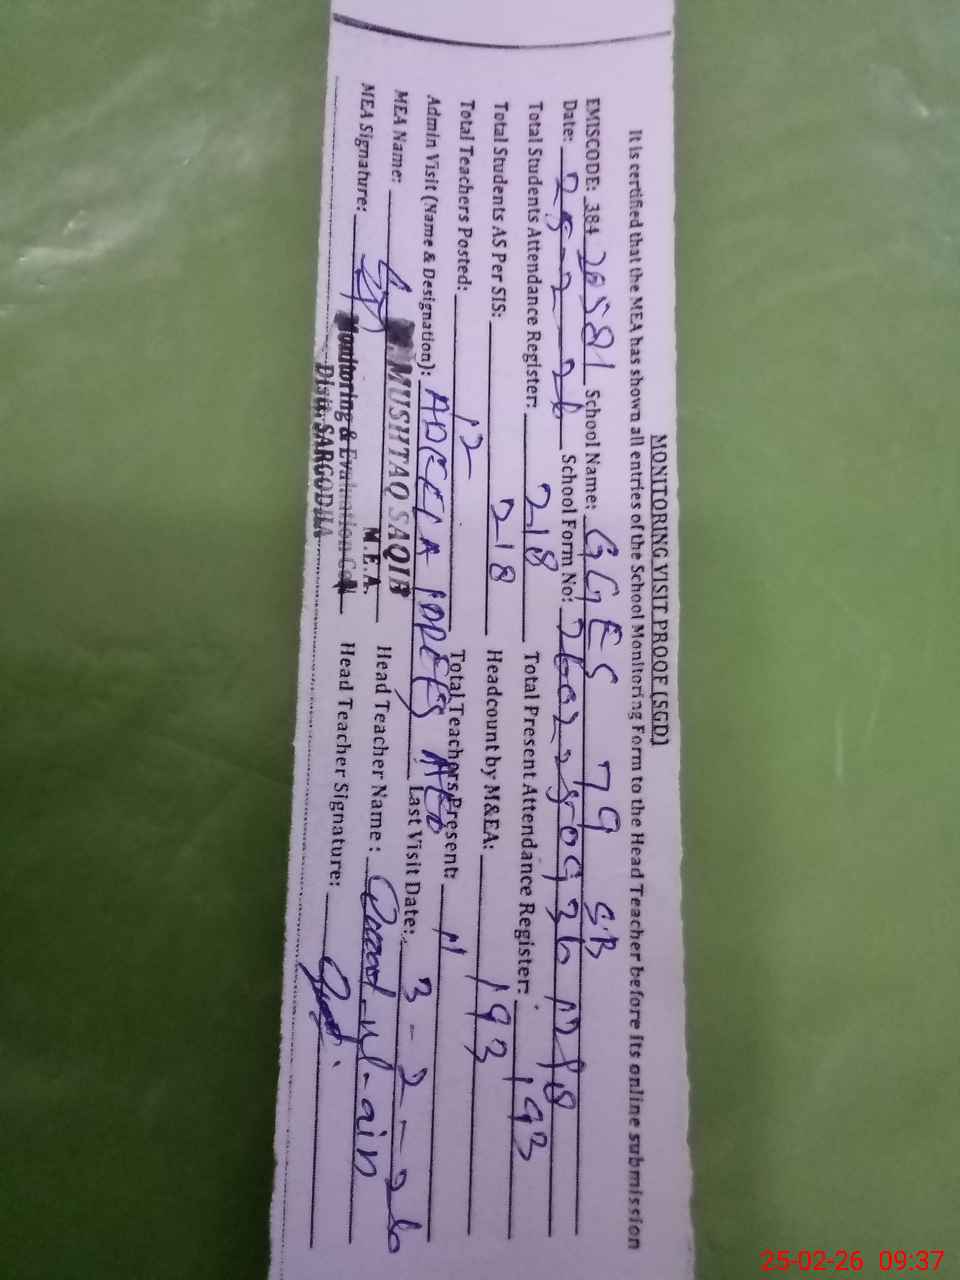 MONITORING VISIT PROOF (SGD)
It is certified that the MEA has shown all entries of the School Monitoring Form to the Head Teacher before its online submission
EMISCODE: 384 20581 School Name: GGES 79 SB
Date: 25-2-26 School Form No: 2602250936 M98
Total Students Attendance Register: 218 Total Present Attendance Register: 193
Total Students AS Per SIS: 218 Headcount by M&EA: 193
Total Teachers Posted: 12 Total Teachers Present: 11
Admin Visit (Name & Designation): ADEELA IDREES AEO Last Visit Date: 3-2-26
MEA Name: MUSHTAQ SAQIB Head Teacher Name: -ul-ain
M.E.A.
MEA Signature: Monitoring & Evaluation Cell Head Teacher Signature:
Distt. SARGODHA
25-02-26 09:37